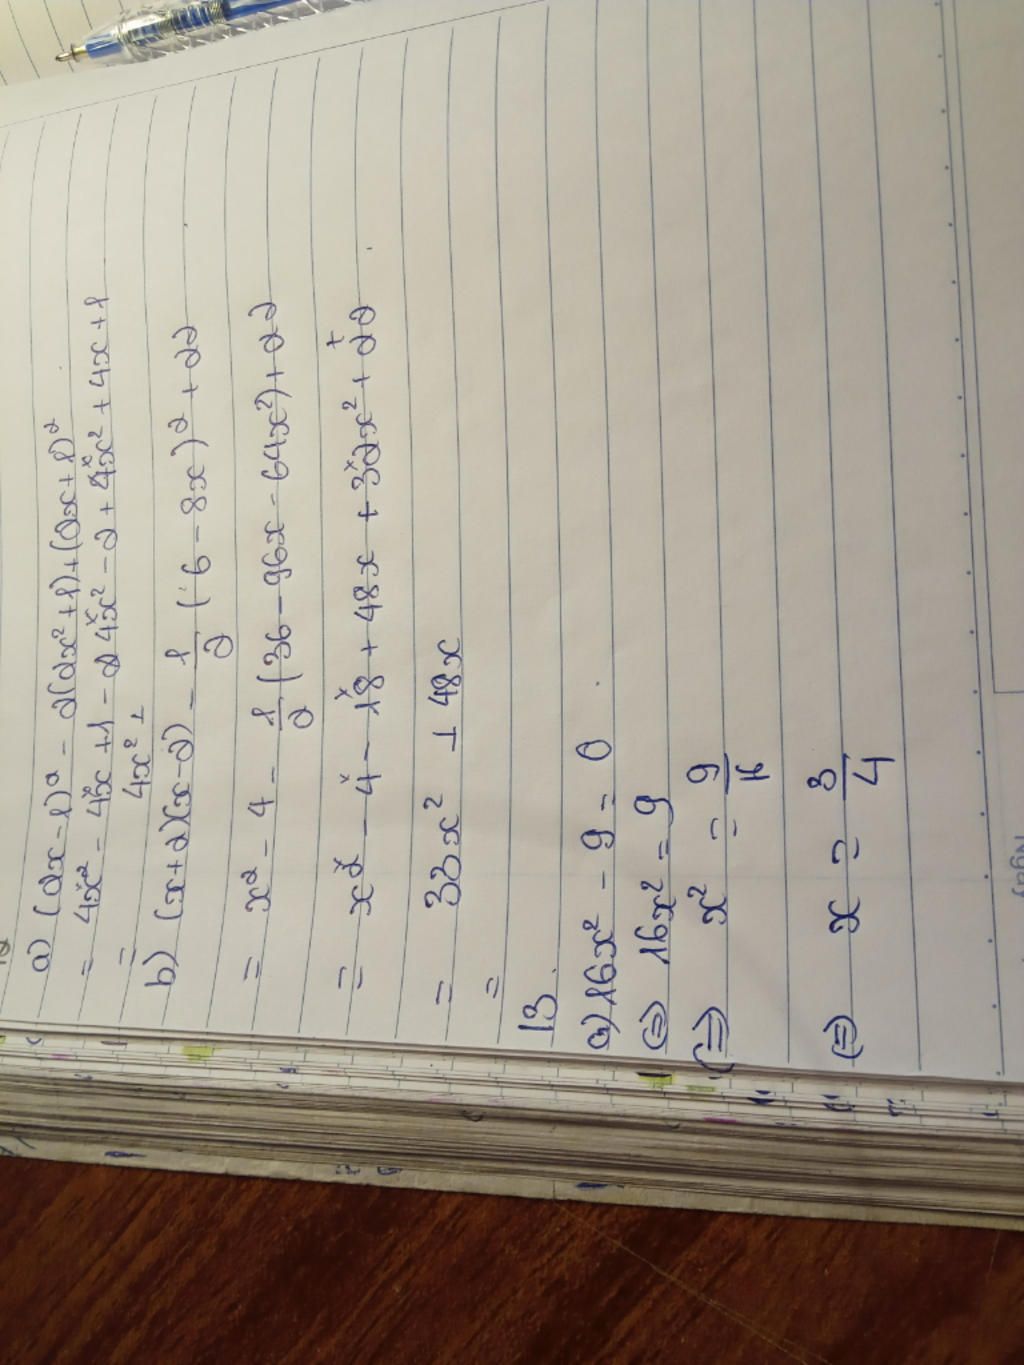 a) (2x - 1)² - 2(2x² + 1) + (2x + 1)²
= 4x² - 4x + 1 - 2 4x² - 2 + 4x² + 4x + 1
= 4x² +
b) (x + 2)(x - 2) - 1/2 (6 - 8x)² + 22
= x² - 4 - 1/2 (36 - 96x - 64x²) + 22
= x² - 4 - 18 + 48x + 32x² + 22
= 33x² + 48x
=
13.
a) 16x² - 9 = 0
(=) 16x² = 9
(=) x² = 9/16
(=) x = 3/4
Ngày